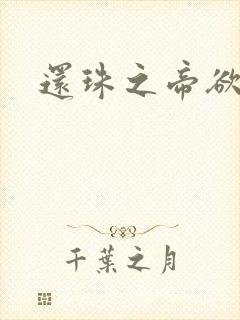 還珠之帝欲
千葉之月